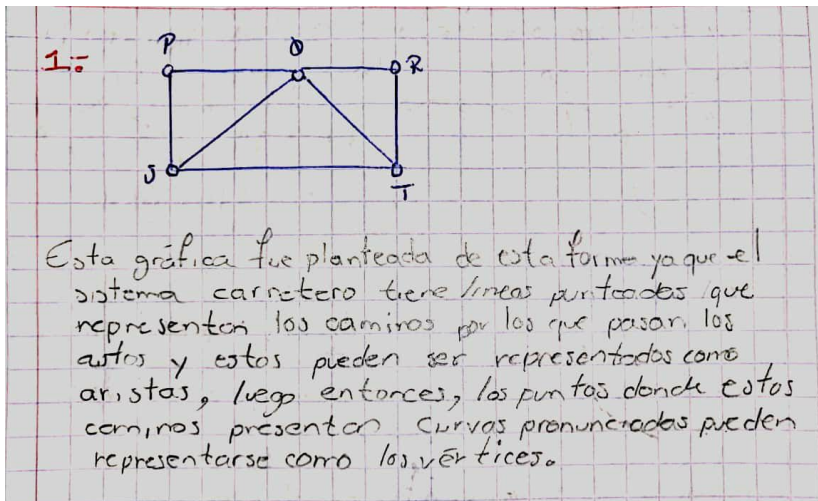 1:-
P Q R
S T
Esta gráfica fue planteada de esta forma ya que el
sistema carretero tiene líneas punteadas que
representan los caminos por los que pasan los
autos y estos pueden ser representados como
aristas, luego entonces, los puntos donde estos
caminos presentan curvas pronunciadas pueden
representarse como los vértices.